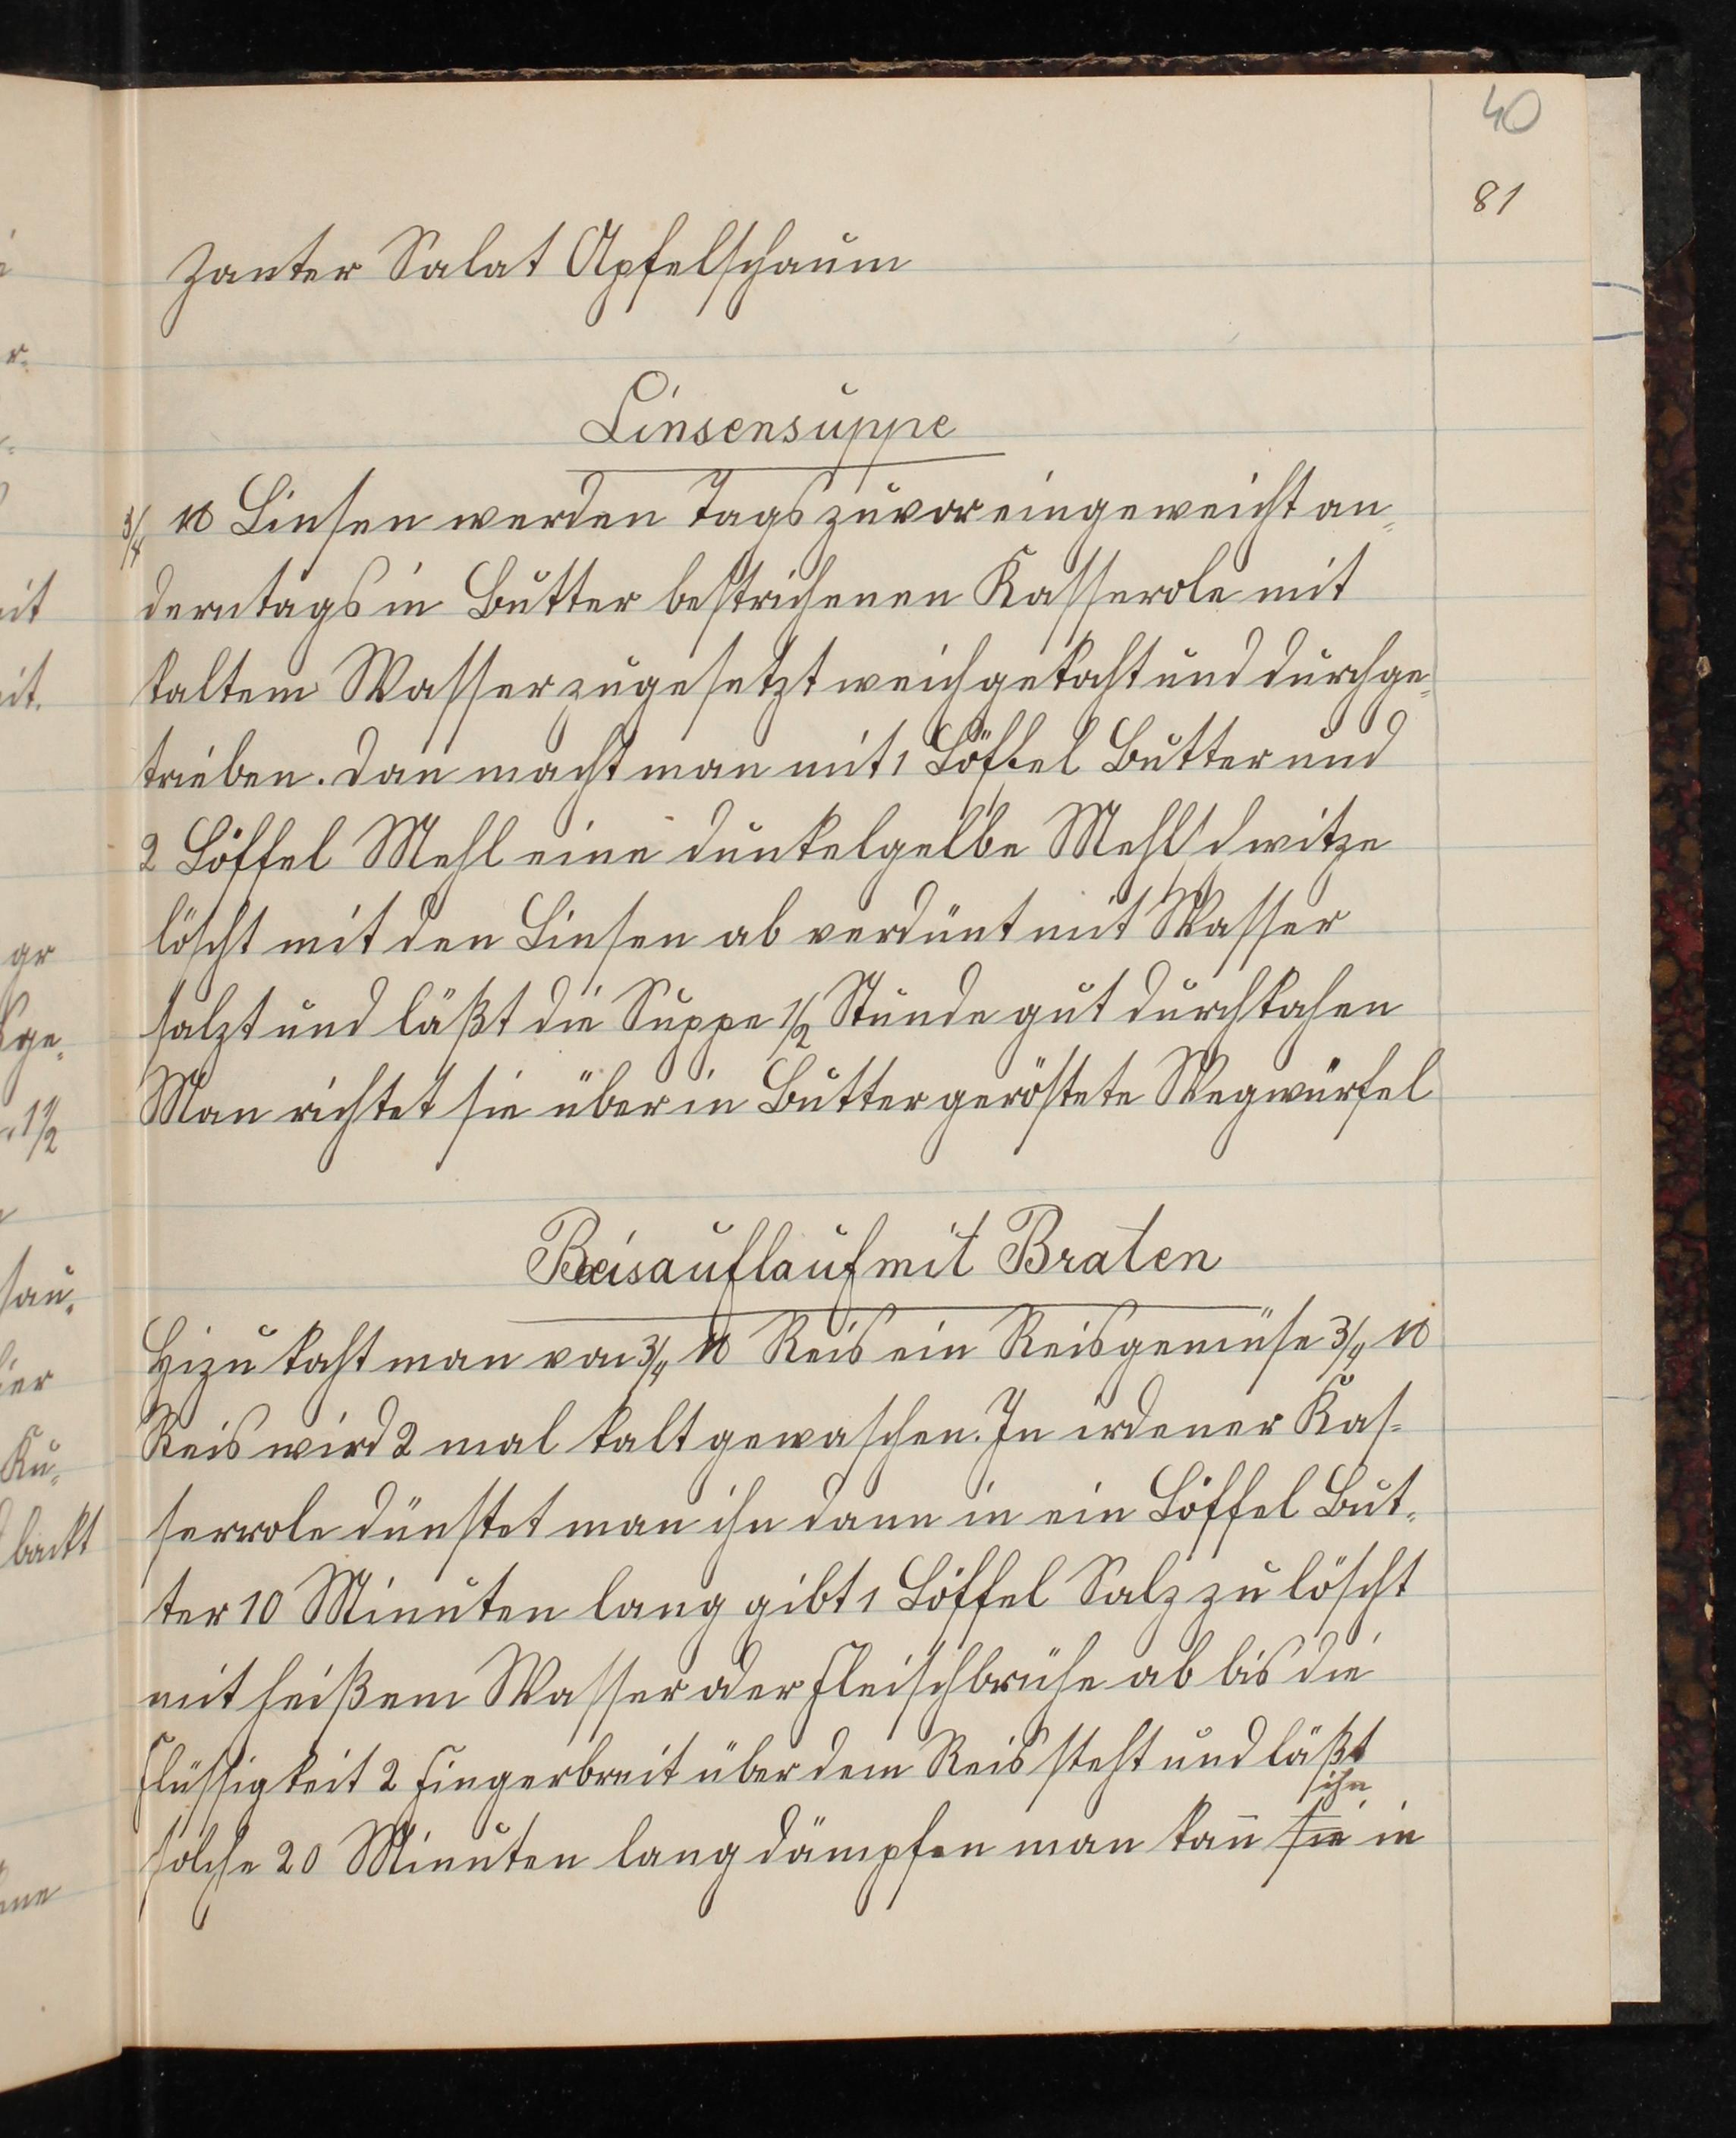 40
81
Zanter Salat Apfelschaum
Linsensuppe
3/4 ℔ Linsen werden Tags zuvor eingeweicht an-
derntags in Butter bestrichenen Kasserole mit
kaltem Wasser zugesetzt weichgekocht und durchge-
trieben. Dan macht man mit 1 Löffel Butter und
2 Löffel Mehl eine dunkelgelbe
löscht mit den Linsen ab verdünt mit Wasser
salzt und läßt die Suppe 1/2 Stunde gut durchkochen
Man richtet sie über in Butter geröstete Wegwürfel
Reisauflauf mit Braten
Hizu kocht man von 3/4 ℔ Reis ein Reisgemüse 3/4 ℔
Reis wird 2 mal kalt gewaschen. In irdener Kas-
serrole dünstet man ihn dann in ein Löffel But-
ter 10 Minuten lang gibt 1 Löffel Salz zu löscht
mit heißem Wasser oder Fleischbrühe ab bis die
Flüssigkeit 2 Fingerbreit über dem Reis steht und läßt
ihn
solche 20 Minuten lang dämpfen man kan̄ sie in